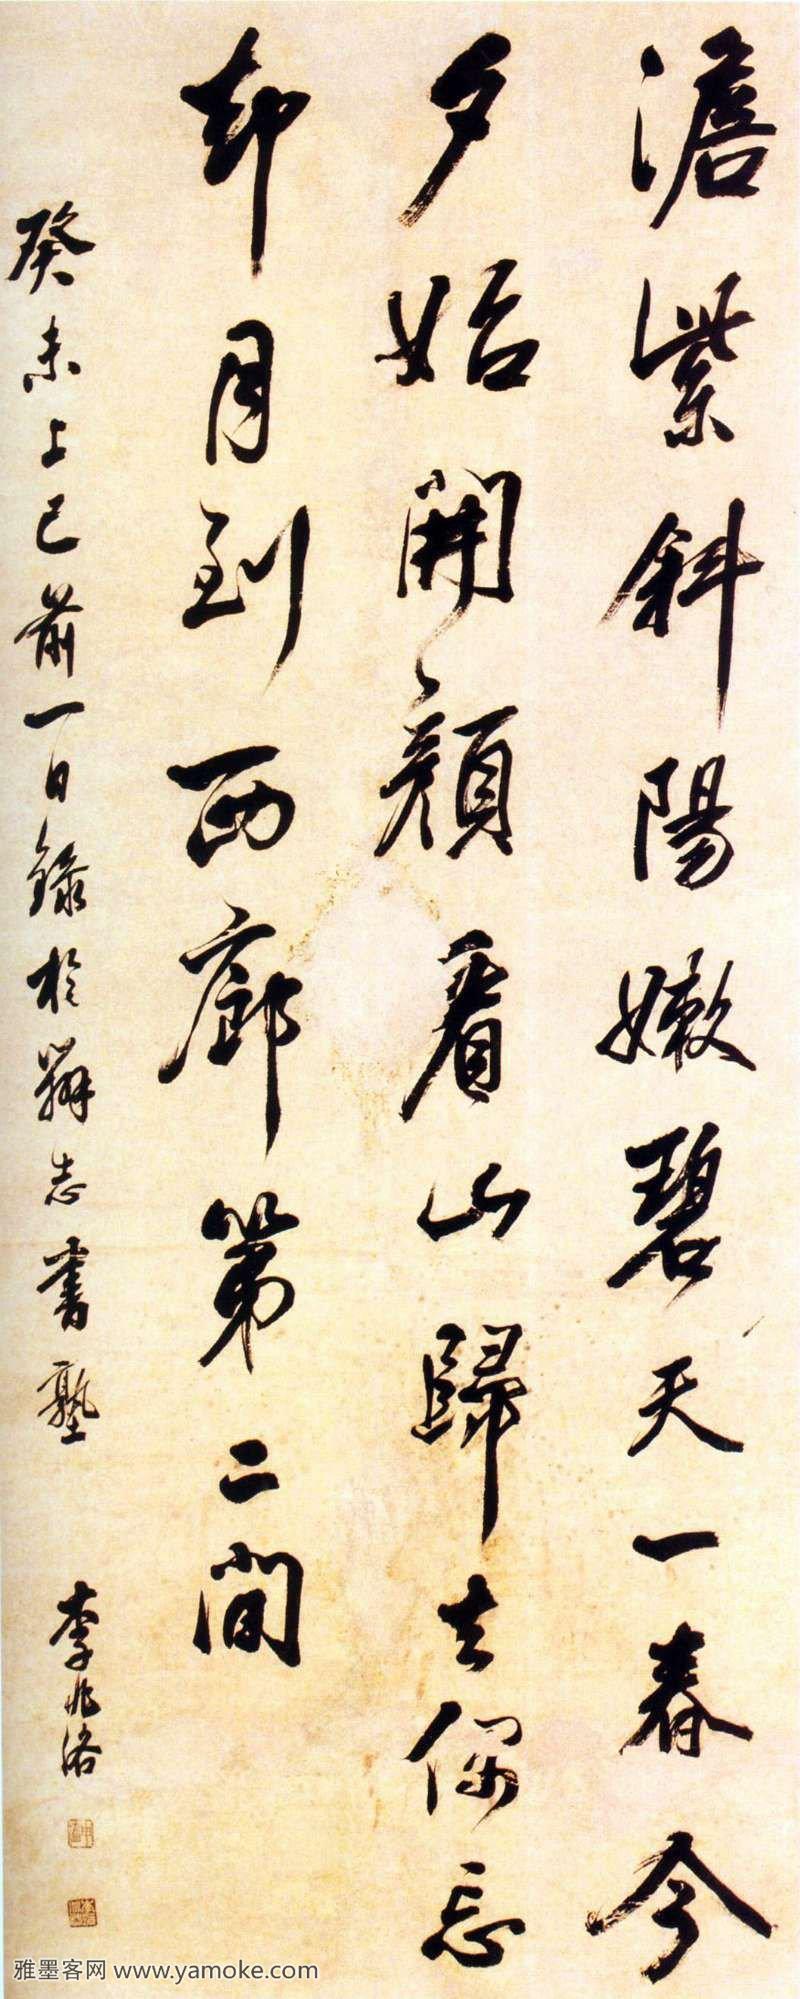 澹紫斜陽嫩碧天一春今
夕始開顏看山歸去偶忘
却月到西廊第二間
癸未上巳前一日錄於辨志書塾 李兆洛
雅墨客网 www.yamoke.com